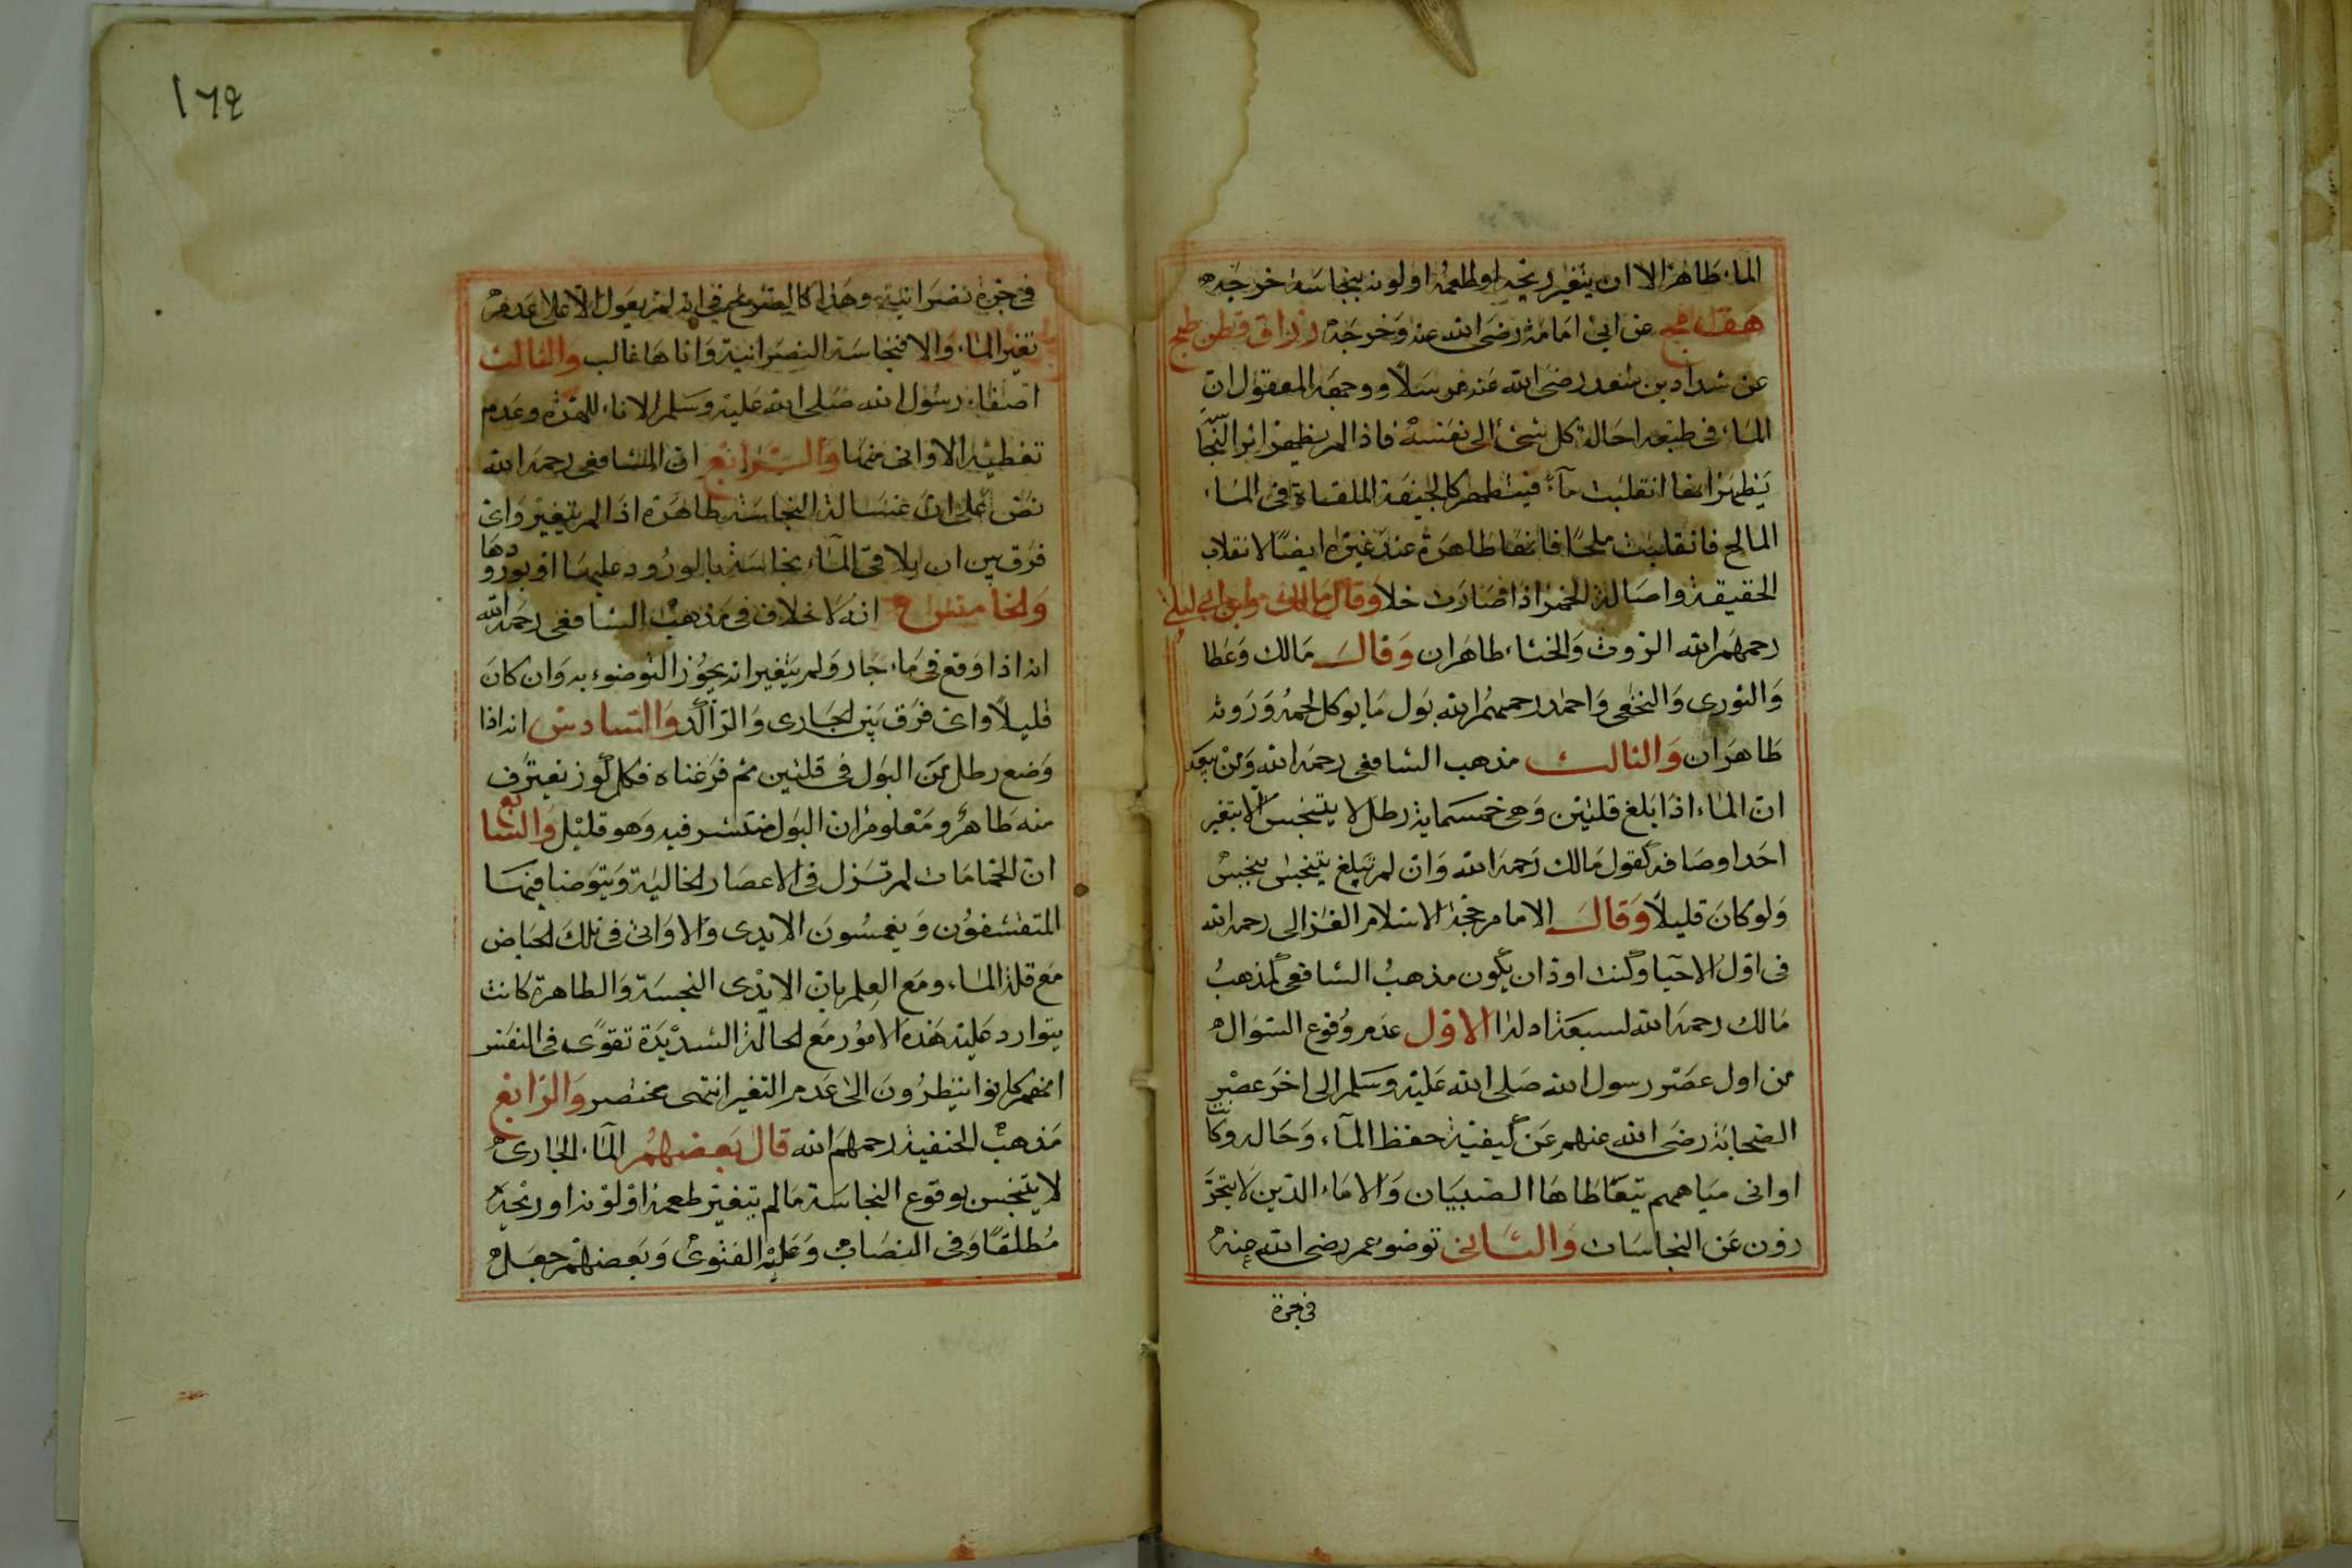 الماء طاهر الا ان يتغير ريحه او طعمه او لونه بنجاسة خرجه
هق عن ابى امامة رضى الله عنه وخرجه رزاق قطن طح
عن شداد بن سعد رضى الله عنه مرسلا ووجهه المعقول ان
الماء فى طبعه احالة كل شئ الى نفسه فاذا لم يظهر اثر النجا
يظهر انها انقلبت ماء فيتطهر كالجيفة الملقاة فى الماء
المالح فانقلبت ملحا فانها طاهرة عند غيره ايضا لانقلاب
الحقيقة واصالة الخمر اذا صارت خلا وقال مالك وابن ابى ليلى
رحمهم الله الروث والخثاء طاهران وقال مالك وعطا
والثورى والنخعى واحمد رحمهم الله بول ما يوكل لحمه وروثه
طاهران والثالث مذهب الشافعى رحمه الله ومن يبعه
ان الماء اذا بلغ قلتين وهى خمسماية رطل لا يتنجس الا بتغير
احد اوصافه كقول مالك رحمه الله وان لم تبلغ يتنجس بنجس
ولو كان قليلا وقال الامام حجة الاسلام الغزالى رحمه الله
فى اول الاحيا وكنت اود ان يكون مذهب الشافعى كمذهب
مالك رحمه الله لسبعة ادلة الاول عدم وقوع السوال
من اول عصر رسول الله صلى الله عليه وسلم الى اخر عصر
الصحابة رضى الله عنهم عن كيفية حفظ الماء وحاله وكانت
اوانى مياههم يتعاطاها الصبيان والاماء الذين لا يتحر
زون عن النجاسات والثانى توضو عمر رضى الله عنه
فى جرة
١٦٩
فى جرة نصرانية وهذا كالصريح فى انه لم يعول الا على عدم
تغير الماء والا فنجاسة النصرانية واناها غالب والثالث
اصغاء رسول الله صلى الله عليه وسلم الاناء للهرة وعدم
تغطية الاوانى منها والرابع ان الشافعى رحمه الله
نص على ان غسالة النجاسة طاهرة اذا لم يتغير واى
فرق بين ان يلاقى الماء نجاسة بالورود عليها او بورودها
والخامس انه لا خلاف فى مذهب الشافعى رحمه الله
انه اذا وقع فى ماء جار ولم يتغير انه يجوز التوضوء به وان كان
قليلا واى فرق بين الجارى والراكد والسادس انه اذا
وضع رطل من البول فى قلتين ثم فرغناه فكل كوز نعترف
منه طاهر ومعلوم ان البول منتشر فيه وهو قليل والسابع
ان الحمامات لم تزل فى الاعصار الخالية ويتوضا فيها
المتقشفون ويغمسون الايدى والاوانى فى تلك الحياض
مع قلة الماء ومع العلم بان الايدى النجسة والطاهرة كانت
يتوارد عليه هذه الامور مع الحالة الشديدة تقوى فى النفس
انهم كانوا ينظرون الى عدم التغير انتهى مختصر والرابع
مذهب الحنفية رحمهم الله قال بعضهم الماء الجارى
لا يتنجس بوقوع النجاسة ما لم يتغير طعمه او لونه او ريحه
مطلقا وفى النصاب وعليه الفتوى وبعضهم جعل